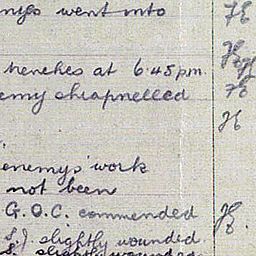 went into
trenches at 6.45pm
enemy shrapnelled
enemys work
not been
G.O.C. commended
slightly wounded.
slightly wounded